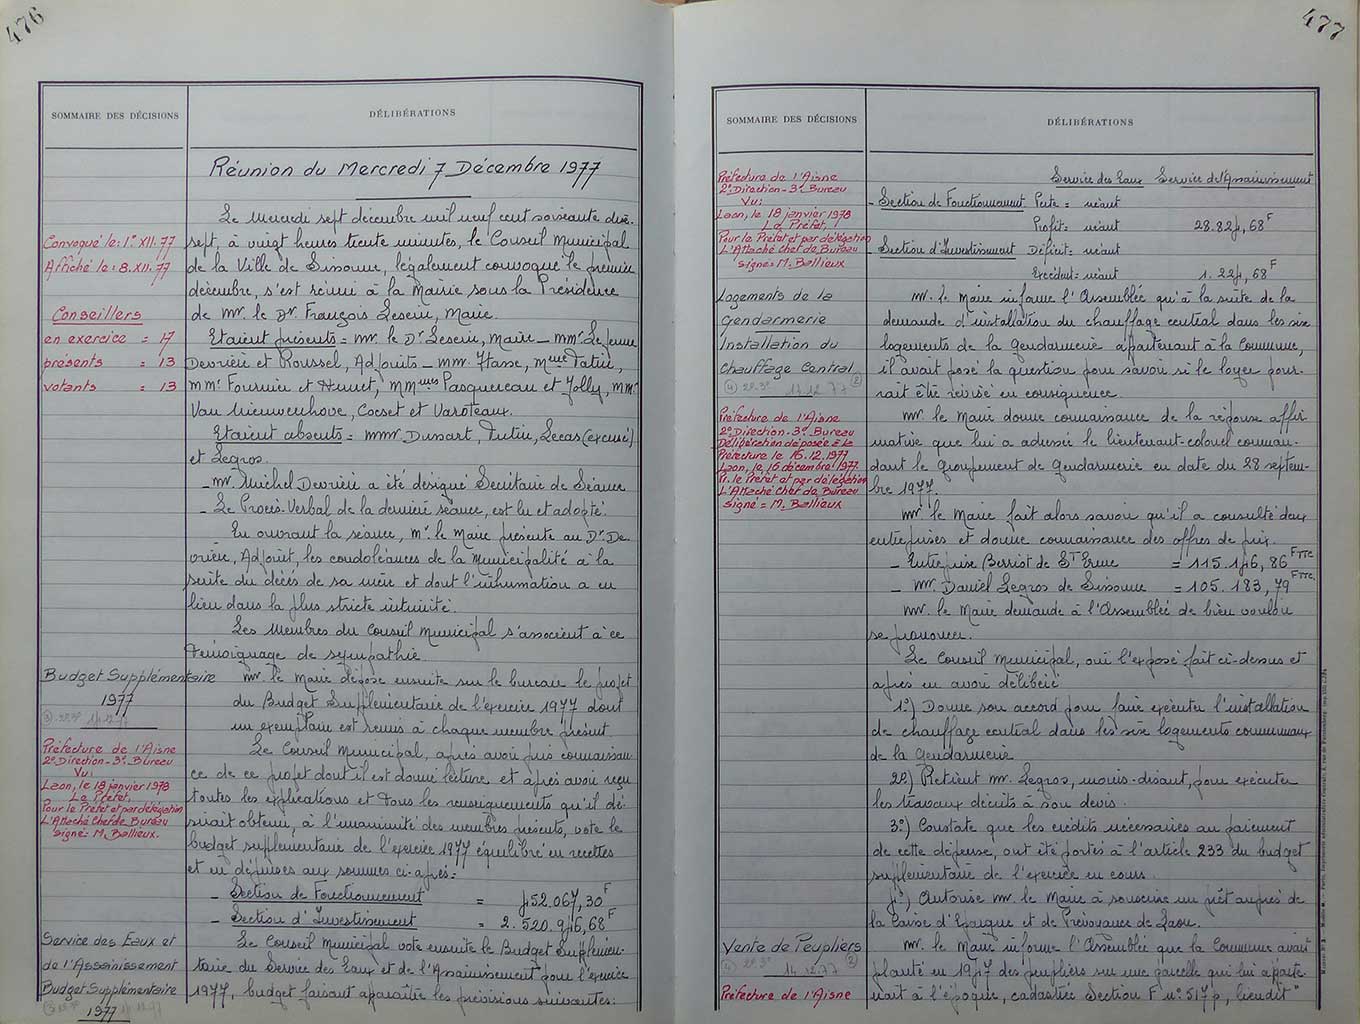 476
SOMMAIRE DES DÉCISIONS
DÉLIBÉRATIONS
Réunion du Mercredi 7 Décembre 1977
Convoqué le: 1º.XII.77
Affiché le: 8.XII.77
Conseillers
en exercice = 17
présents = 13
votants = 13
Le Mercredi sept décembre mil neuf cent soixante dix-
sept, à vingt heures trente minutes, le Conseil Municipal
de la Ville de Sissonne, légalement convoqué le premier
décembre, s'est réuni à la Mairie sous la Présidence
de Mr. le Dr. François Leserin, Maire.
Etaient présents = Mr. le Dr. Leserin, Maire _ MMr. Lejeune
Devrière et Roussel, Adjoints _ MM. Hasse, Mme
MMr. Fournier et Hennet, MMmes Pasquereau et Jolly, MMr
Van Nieuwenhove, Cocset et Varoteaux.
Etaient absents = MMr. Dussart, Lecas (excusé)
et Legros.
_ Mr. Michel Devrière a été désigné Secrétaire de Séance
_ Le Procès-Verbal de la dernière séance, est lu et adopté.
En ouvrant la séance, Mr. le Maire présente au Dr. De-
vrière, Adjoint, les condoléances de la Municipalité à la
suite du décès de sa mère et dont l'inhumation a eu
lieu dans la plus stricte intimité.
Les Membres du Conseil Municipal s'associent à ce
témoignage de sympathie.
Budget Supplémentaire
1977
Mr. le Maire dépose ensuite sur le bureau le projet
du Budget Supplémentaire de l'exercice 1977 dont
un exemplaire est remis à chaque membre présent.
Préfecture de l'Aisne
2º Direction - 3º. Bureau
Vu:
Laon, le 18 janvier 1978
Le Préfet,
Pour le Préfet et par délégation
L'Attaché Chef de Bureau
signé = M. Ballieux.
Le Conseil Municipal, après avoir pris connaissan-
ce de ce projet dont il est donné lecture et après avoir reçu
toutes les explications et tous les renseignements qu'il dé-
sirait obtenir, à l'unanimité des membres présents, vote le
budget supplémentaire de l'exercice 1977 équilibré en recettes
et en dépenses aux sommes ci-après:
_ Section de Fonctionnement = 452.067,30F
_ Section d'Investissement = 2.520.946,68F
Service des Eaux et
de l'Assainissement
Budget Supplémentaire
1977
Le Conseil Municipal vote ensuite le Budget Supplémen-
taire du Service des Eaux et de l'Assainissement pour l'exercice
1977, budget faisant apparaître les prévisions suivantes:
477
SOMMAIRE DES DÉCISIONS
DÉLIBÉRATIONS
Préfecture de l'Aisne
2º Direction - 3º. Bureau
Vu:
Laon, le 18 janvier 1978
Le Préfet,
Pour le Préfet et par délégation
L'Attaché Chef de Bureau
signé = M. Ballieux
Service des Eaux Service de l'Assainissement
_ Section de Fonctionnement Perte = néant
Profit = néant 28.824,68F
_ Section d'Investissement Déficit = néant
Excédent = néant 1.224,68F
Logements de la
Gendarmerie
Installation du
Chauffage Central
14.12.77
Mr. le Maire informe l'Assemblée qu'à la suite de la
demande d'installation du chauffage central dans les six
logements de la Gendarmerie appartenant à la Commune,
il avait posé la question pour savoir si le loyer pour-
rait être révisé en conséquence.
Préfecture de l'Aisne
2º Direction - 3º. Bureau
Délibération déposée à la
Préfecture le 16.12.1977
Laon, le 16 décembre 1977
Pr. le Préfet et par délégation
L'Attaché Chef de Bureau
signé = M. Ballieux
Mr. le Maire donne connaissance de la réponse affir-
mative que lui a adressée le lieutenant-colonel comman-
dant le groupement de Gendarmerie en date du 28 septem-
bre 1977.
Mr. le Maire fait alors savoir qu'il a consulté deux
entreprises et donne connaissance des offres de prix.
_ Entreprise Berriot de St Erme = 115.146,86 F TTC
_ Mr. Daniel Legros de Sissonne = 105.183,79 F TTC.
Mr. le Maire demande à l'Assemblée de bien vouloir
se prononcer.
Le Conseil Municipal, ouï l'exposé fait ci-dessus et
après en avoir délibéré
1º) Donne son accord pour faire exécuter l'installation
de chauffage central dans les six logements communaux
de la Gendarmerie
2º) Retient Mr. Legros, moins-disant, pour exécuter
les travaux décrits à son devis.
3º) Constate que les crédits nécessaires au paiement
de cette dépense, ont été portés à l'article 233 du budget
supplémentaire de l'exercice en cours.
4º) Autorise Mr. le Maire à souscrire un prêt auprès de
la Caisse d'Epargne et de Prévoyance de Laon.
Vente de Peupliers
14.12.77
Préfecture de l'Aisne
Mr. le Maire informe l'Assemblée que la Commune avait
planté en 1947 des peupliers sur une parcelle qui lui apparte-
nait à l'époque, cadastrée Section F nº 517p, lieudit "